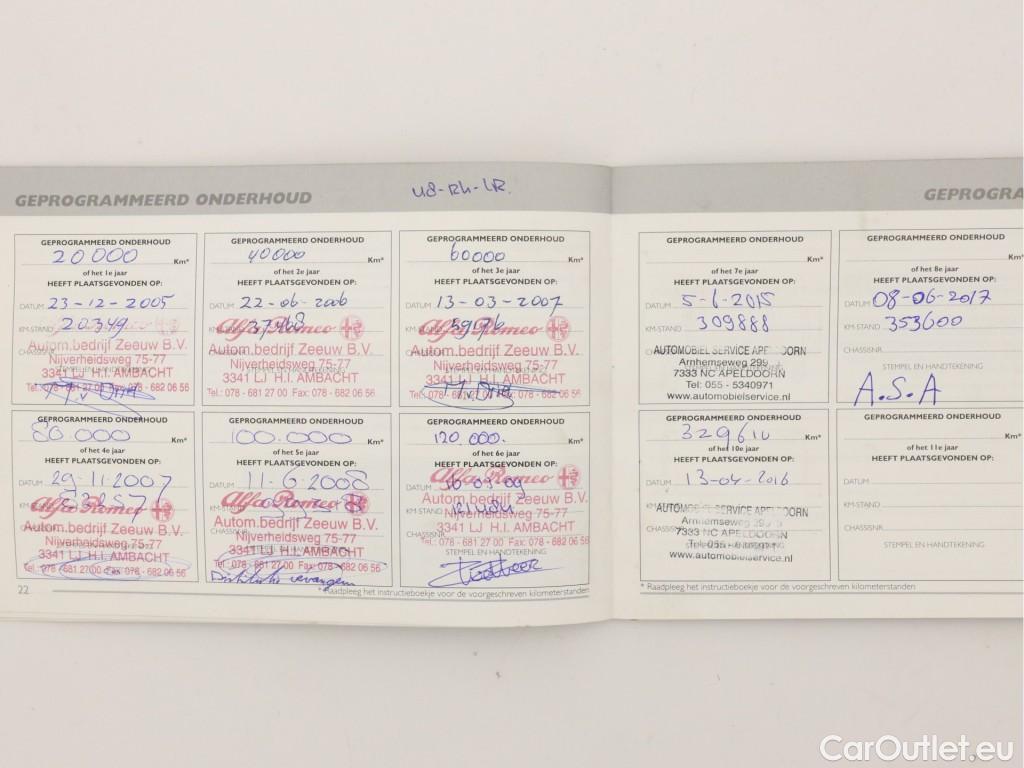 GEPROGRAMMEERD ONDERHOUD
48-RH-LR.
GEPROGRAMMEERD ONDERHOUD
20000 Km*
of het 1e jaar
HEEFT PLAATSGEVONDEN OP:
DATUM 23-12-2005
KM-STAND 20349
Alfa Romeo
CHASSISNR.
Autom.bedrijf Zeeuw B.V.
Nijverheidsweg 75-77
STEMPEL EN HANDTEKENING
3341 LJ H.I. AMBACHT
Tel.: 078 - 681 27 00 Fax: 078 - 682 06 56
GEPROGRAMMEERD ONDERHOUD
40000 Km*
of het 2e jaar
HEEFT PLAATSGEVONDEN OP:
DATUM 22-06-2006
KM-STAND
Alfa Romeo
Autom.bedrijf Zeeuw B.V.
CHASSISNR.
Nijverheidsweg 75-77
STEMPEL EN HANDTEKENING
3341 LJ H.I. AMBACHT
Tel.: 078 - 681 27 00 Fax: 078 - 682 06 56
GEPROGRAMMEERD ONDERHOUD
60000 Km*
of het 3e jaar
HEEFT PLAATSGEVONDEN OP:
DATUM 13-03-2007
KM-STAND
Alfa Romeo
Autom.bedrijf Zeeuw B.V.
CHASSISNR.
Nijverheidsweg 75-77
STEMPEL EN HANDTEKENING
3341 LJ H.I. AMBACHT
Tel.: 078 - 681 27 00 Fax: 078 - 682 06 56
GEPROGRAMMEERD ONDERHOUD
80.000 Km*
of het 4e jaar
HEEFT PLAATSGEVONDEN OP:
DATUM 29-11-2007
KM-STAND
Alfa Romeo
Autom.bedrijf Zeeuw B.V.
CHASSISNR.
Nijverheidsweg 75-77
3341 LJ H.I. AMBACHT
Tel.: 078 - 681 27 00 Fax: 078 - 682 06 56
GEPROGRAMMEERD ONDERHOUD
100.000 Km*
of het 5e jaar
HEEFT PLAATSGEVONDEN OP:
DATUM 11-6-2008
KM-STAND
Alfa Romeo
Autom.bedrijf Zeeuw B.V.
CHASSISNR.
Nijverheidsweg 75-77
3341 LJ H.I. AMBACHT
Tel.: 078 - 681 27 00 Fax: 078 - 682 06 56
vervangen
GEPROGRAMMEERD ONDERHOUD
120.000. Km*
of het 6e jaar
HEEFT PLAATSGEVONDEN OP:
DATUM 16-03-09
Alfa Romeo
Autom.bedrijf Zeeuw B.V.
KM-STAND
Nijverheidsweg 75-77
CHASSISNR.
3341 LJ H.I. AMBACHT
Tel.: 078 - 681 27 00 Fax: 078 - 682 06 56
STEMPEL EN HANDTEKENING
22
* Raadpleeg het instructieboekje voor de voorgeschreven kilometerstanden
GEPROGRA
GEPROGRAMMEERD ONDERHOUD
Km*
of het 7e jaar
HEEFT PLAATSGEVONDEN OP:
DATUM 5-1-2015
KM-STAND 309888
AUTOMOBIEL SERVICE APELDOORN
Arnhemseweg 299
7333 NC APELDOORN
Tel: 055 - 5340971
www.automobielservice.nl
GEPROGRAMMEERD ONDERHOUD
of het 8e jaar
HEEFT PLAATSGEVONDEN OP:
DATUM 08-06-2017
KM-STAND 353600
CHASSISNR.
STEMPEL EN HANDTEKENING
A.S.A
GEPROGRAMMEERD ONDERHOUD
329610 Km*
of het 10e jaar
HEEFT PLAATSGEVONDEN OP:
DATUM 13-04-2016
KM-STAND
AUTOMOBIEL SERVICE APELDOORN
Arnhemseweg 299
CHASSISNR.
7333 NC APELDOORN
www.automobielservice.nl
GEPROGRAMMEERD ONDERHOUD
of het 11e jaar
HEEFT PLAATSGEVONDEN OP:
DATUM
KM-STAND
CHASSISNR.
STEMPEL EN HANDTEKENING
* Raadpleeg het instructieboekje voor de voorgeschreven kilometerstanden
CarOutlet.eu